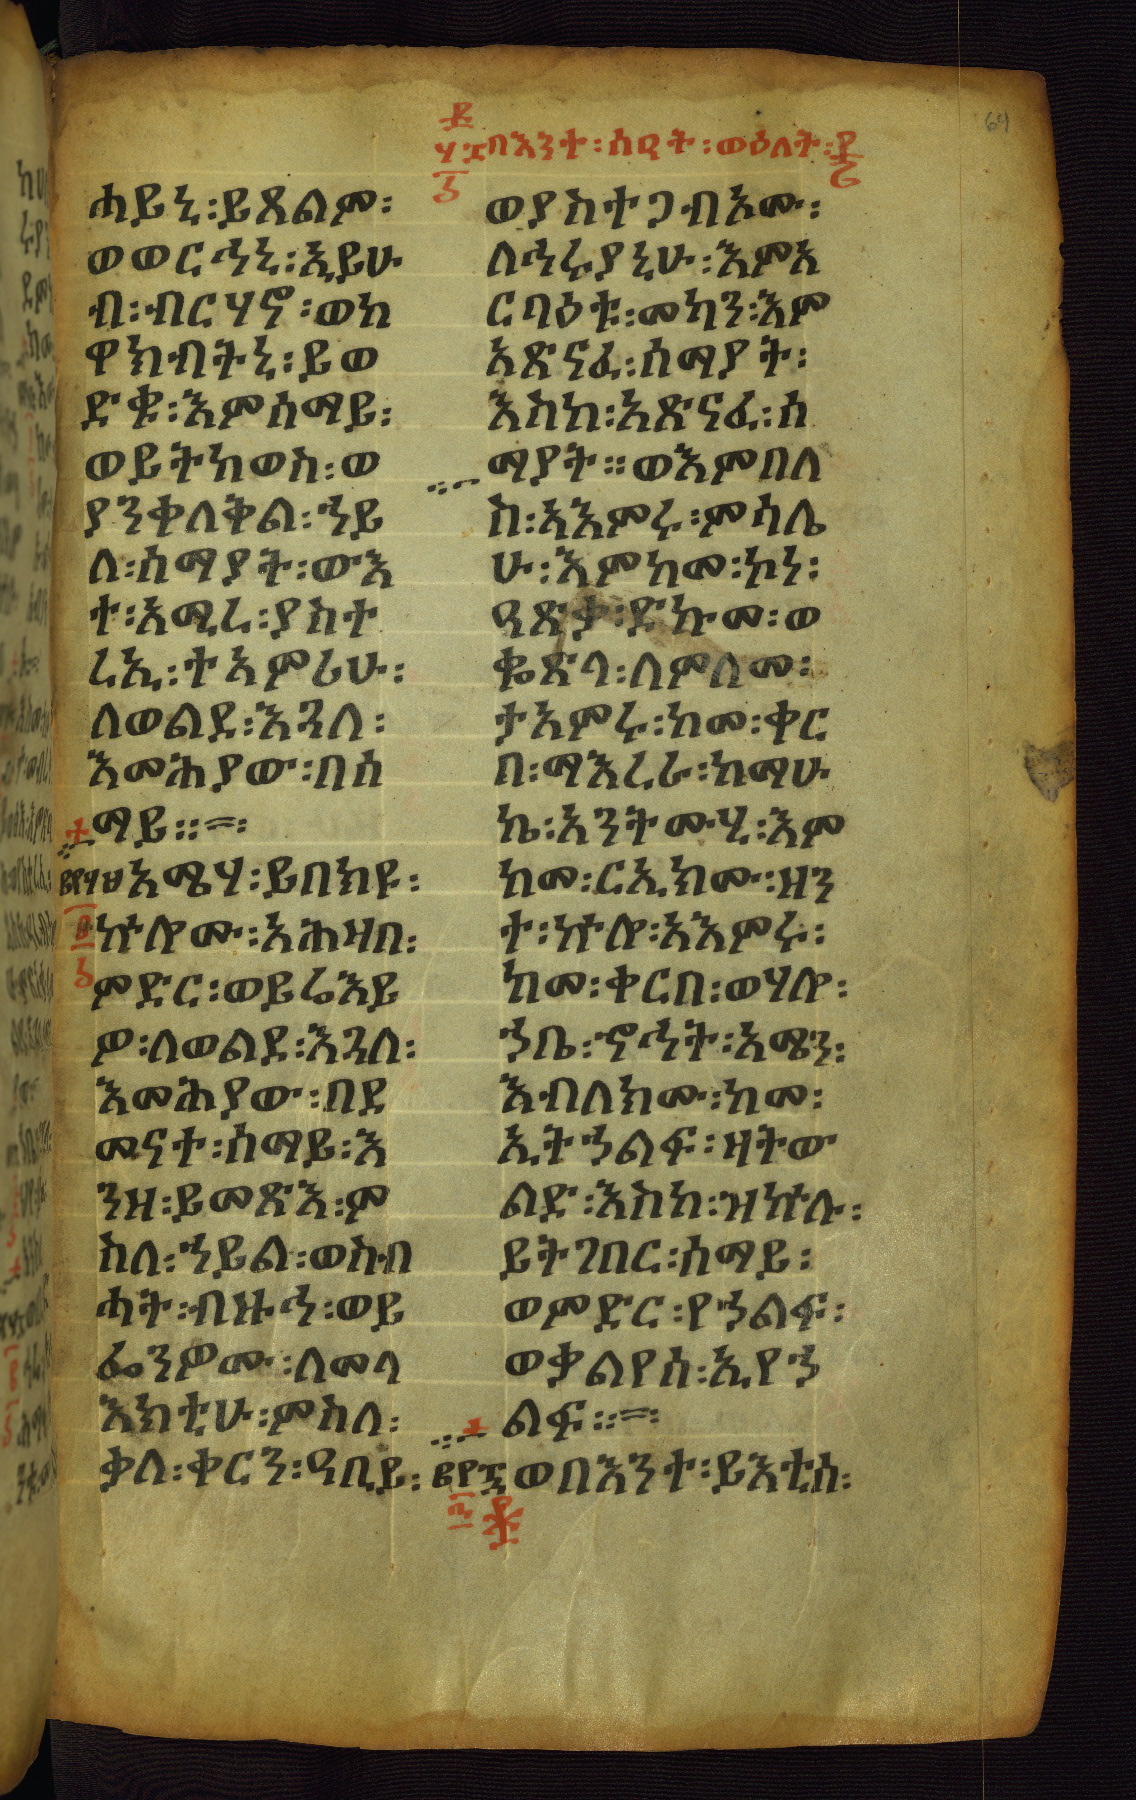 በእንተ፡ሰዓት፡ወዕለት፡
ሓይኒ፡ይጸልም፡
ወወርኅኒ፡ኢይሁ
ብ፡ብርሃኖ፡ወከ
ዋክብትኒ፡ይወ
ድቁ፡እምሰማይ፡
ወይትከወስ፡ወ
ያንቀለቅል፡ኀይ
ለ፡ሰማያት፡ውእ
ተ፡አሚረ፡ያስተ
ረኢ፡ተአምሪሁ፡
ለወልደ፡እጓለ፡
እመሕያው፡በሰ
ማይ፡፡=፡
አሜሃ፡ይበክዩ፡
ኵሎሙ፡አሕዛበ፡
ምድር፡ወይሬእይ
ዎ፡ለወልደ፡እጓለ፡
እመሕያው፡በደ
መናተ፡ሰማይ፡እ
ንዘ፡ይመጽእ፡ም
ስለ፡ኀይል፡ወስብ
ሓት፡ብዙኅ፡ወይ
ፌንዎሙ፡ለመላ
እክቲሁ፡ምስለ፡
ቃለ፡ቀርን፡ዓቢይ፡
ወያስተጋብእሙ፡
ለኅሩያኒሁ፡እምአ
ርባዕቱ፡መካን፡እም
አጽናፈ፡ሰማያት፡
እስከ፡አጽናፈ፡ሰ
ማያት፡፡ወእምበለ
ስ፡አእምሩ፡ምሳሌ
ሁ፡እምከመ፡ኮነ፡
ዓጽቃ፡ድኩመ፡ወ
ቈጽላ፡ለምለመ፡
ታአምሩ፡ከመ፡ቀር
በ፡ማእረራ፡ከማሁ
ኬ፡አንትሙሂ፡እም
ከመ፡ርኢክሙ፡ዘን
ተ፡ኵሎ፡አእምሩ፡
ከመ፡ቀርበ፡ወሃሎ፡
ኀቤ፡ኆኅት፡አሜን፡
እብለክሙ፡ከመ፡
ኢትኀልፍ፡ዛትው
ልድ፡እስከ፡ዝኵሉ፡
ይትገበር፡ሰማይ፡
ወምድር፡የኀልፍ፡
ወቃልየሰ፡ኢየኀ
ልፍ፡፡=፡
ወበእንተ፡ይእቲሰ፡